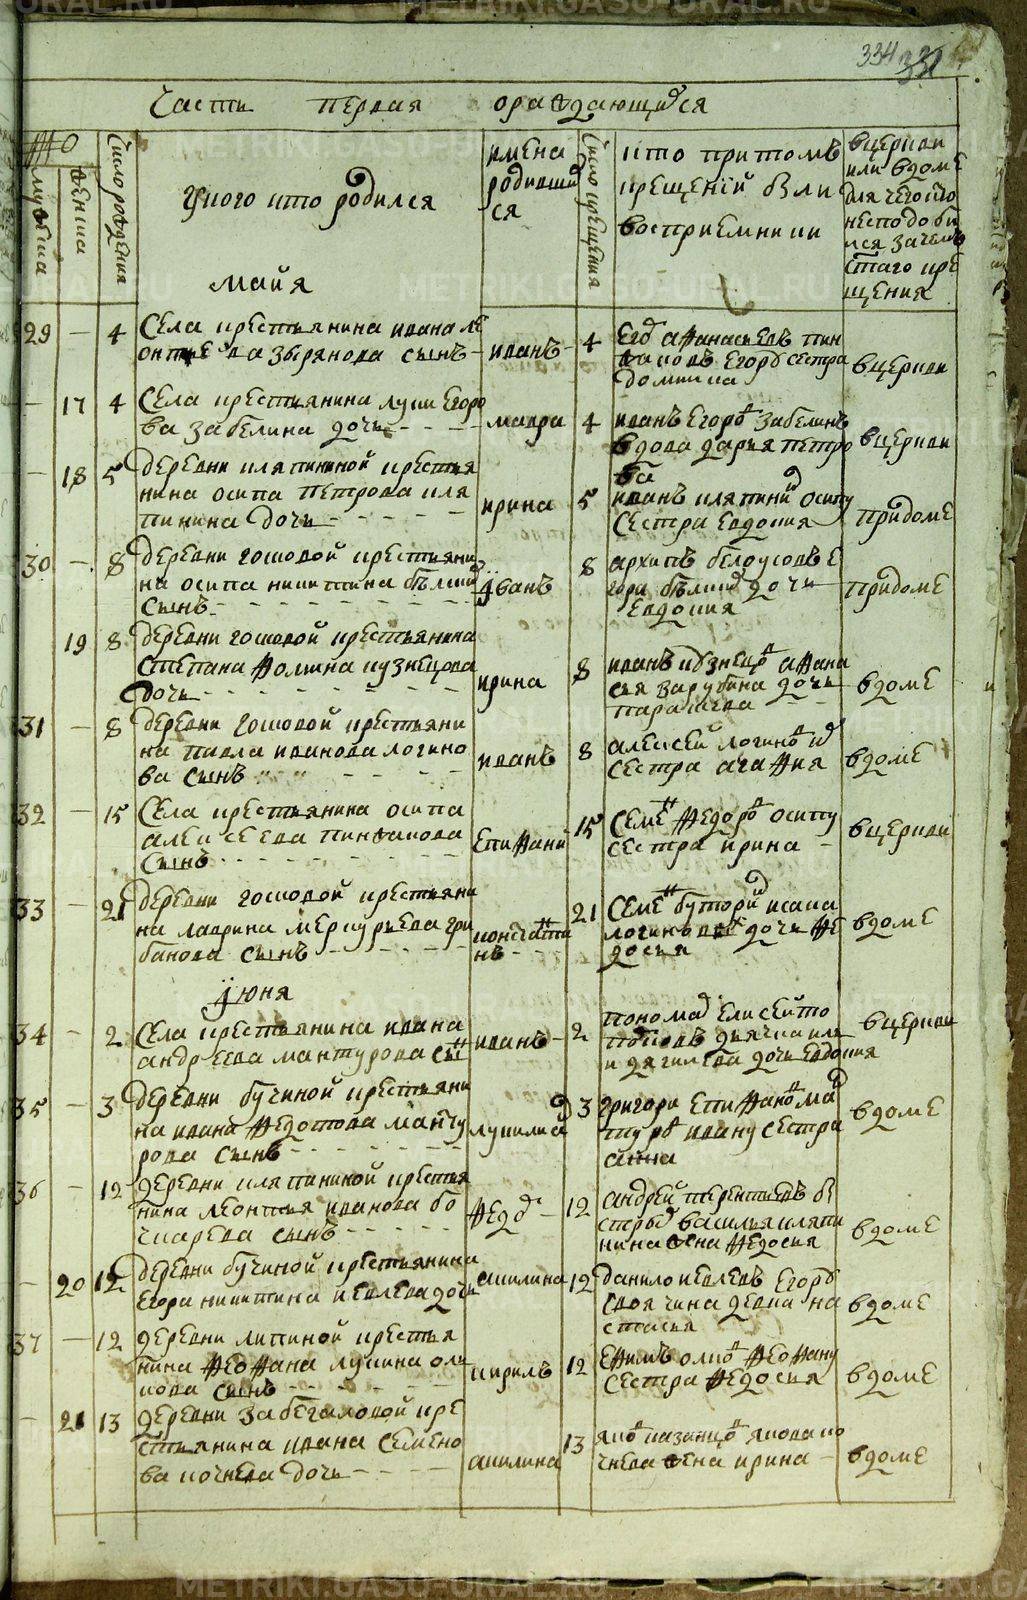 334
Часть первая о раждающихся
№
мужеска
женска
Число рождения
у кого кто родился
имена
родивших
ся
Число крещения
кто притомъ
крещеніи были
восприемники
вцеркви
или вдоме
для чего кто
несподоби
лся зачемъ
стаго кре
щения
майя
29 — 4 Села крестьянина ивана ле
онтьева зырянова сынъ
иванъ 4
Егоръ афанасьевъ пин
жаковъ Егоръ сестра
домника
вцеркви
— 17 4 Села крестьянина луки Егоро
ва забелина дочь
мавра 4
иванъ Егоровъ забелинъ
вдова дарья петро
ва
вцеркви
— 18 5 деревни кляпининой крестья
нина осипа петрова кля
пинина дочь
ирина 5
иванъ кляпининъ осипу
сестра евдокия
придоме
30 — 8 деревни гошовой крестьяни
на осипа никитина
сынъ
иванъ 8
архипъ белоусовъ е
гора дочь
Евдокия
придоме
19 8 деревни гошовой крестьянина
степана фомина кузнецова
дочь
ирина 8
иванъ кузнецовъ афана
сья зарубина дочь
параскева
вдоме
31 — 8 деревни гошовой крестьяни
на павла иванова логино
ва сынъ
иванъ 8
алексей логиновъ
сестра агафия
вдоме
32 — 15 Села крестьянина осипа
алексеева пинжакова
сынъ
Епифаній 15
семенъ федоровъ осипу
сестра ирина
вцеркви
33 — 21 деревни гошовой крестьяни
на лаврина меркурьева гри
банова сынъ
константи
нъ 21
семенъ буторинъ исака
логинова дочь фе
досья
вдоме
іюня
34 — 2 Села крестьянина ивана
андреева мантурова сынъ
иванъ 2
пономарь елисей по
повъ дьячка ил
и дягилева дочь евдокия
вцеркви
35 — 3 деревни бучиной крестьяни
на ивана федотова манту
рова сынъ
лукилианъ 3
григорий Епифановъ ман
туровъ ивану сестра
анна
вдоме
36 — 12 деревни кляпининой крестья
нина леонтья иванова бо
чкарева сынъ
федоръ 12
андрей терентьевъ бы
стрыхъ василья кляпи
нина жена федосья
вдоме
— 20 12 деревни бучиной крестьянина
Егора никитина иевлева дочь
акилина 12
данило иевлевъ Егоръ
своячина девка на
стасья
вдоме
37 — 12 деревни липиной крестья
нина феофана лукина оль
кова сынъ
кирилъ 12
Ефимъ ольковъ феофану
сестра федосья
вдоме
— 21 13 деревни забегаловой кре
стьянина ивана семено
ва кочнева дочь
акилина 13
яковъ казанцовъ якова ко
чнева жена ирина
вдоме
METRIKI.GASO-URAL.RU